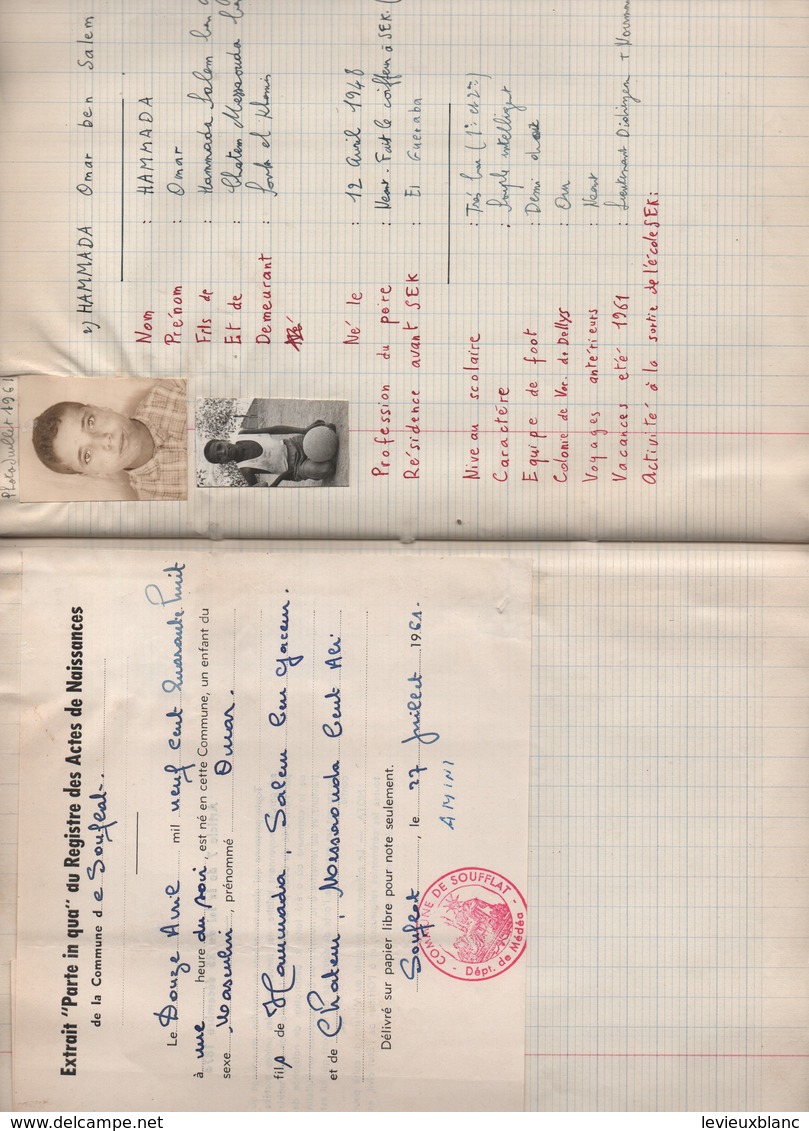 Extrait "Parte in qua" du Registre des Actes de Naissances
de la Commune d e Soufflat
Le Douze Avril mil neuf cent Quarante huit
à une heure du soir, est né en cette Commune, un enfant du
sexe Masculin, prénommé Omar.
fils de Hammadia, Salem ben Gacem.
et de Chatem, Messaouda bent Ali
Délivré sur papier libre pour note seulement.
Soufflat, le 27 Juillet 1961.
AMINI
COMMUNE DE SOUFFLAT
Dépt. de Médéa
Photo Juillet 1961
2) HAMMADA Omar ben Salem
Nom : HAMMADA
Prénom : Omar
Fils de : Hammada Salem ben
Et de : Chatem Messaouda
Demeurant : Souk el Khemis
Né le : 12 Avril 1948
Profession du père : Néant. Fait le coiffeur à SEK.
Résidence avant SEK : El Gueraba
Niveau scolaire : Très bas (1° et 2
Caractère : Souple intelligent
Equipe de foot : Demi droit
Colonie de Vac. de Dellys : Oui
Voyages antérieurs : Néant
Vacances eté 1961 : Lieutenant
Activité à la sortie de l'école SEK:
levieuxblanc
www.delcampe.net